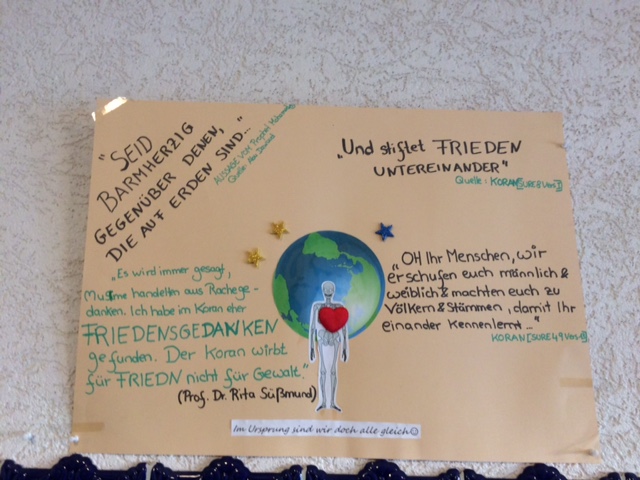 "SEID
BARMHERZIG
GEGENÜBER DENEN,
DIE AUF ERDEN SIND..."
AUSSAGE VOM Prophet
Quelle: Abu
„Und stiftet FRIEDEN
UNTEREINANDER"
Quelle: KORAN [SURE 8 Vers 1]
„Es wird immer gesagt,
Muslime handelten aus Rachege-
danken. Ich habe im Koran eher
FRIEDENSGEDANKEN
gefunden. Der Koran wirbt
für FRIEDN nicht für Gewalt."
(Prof. Dr. Rita Süßmund)
„OH Ihr Menschen, wir
erschufen euch männlich &
weiblich & machten euch zu
Völkern & Stämmen, damit Ihr
einander kennenlernt..."
KORAN [SURE 49 Vers]
Im Ursprung sind wir doch alle gleich☺